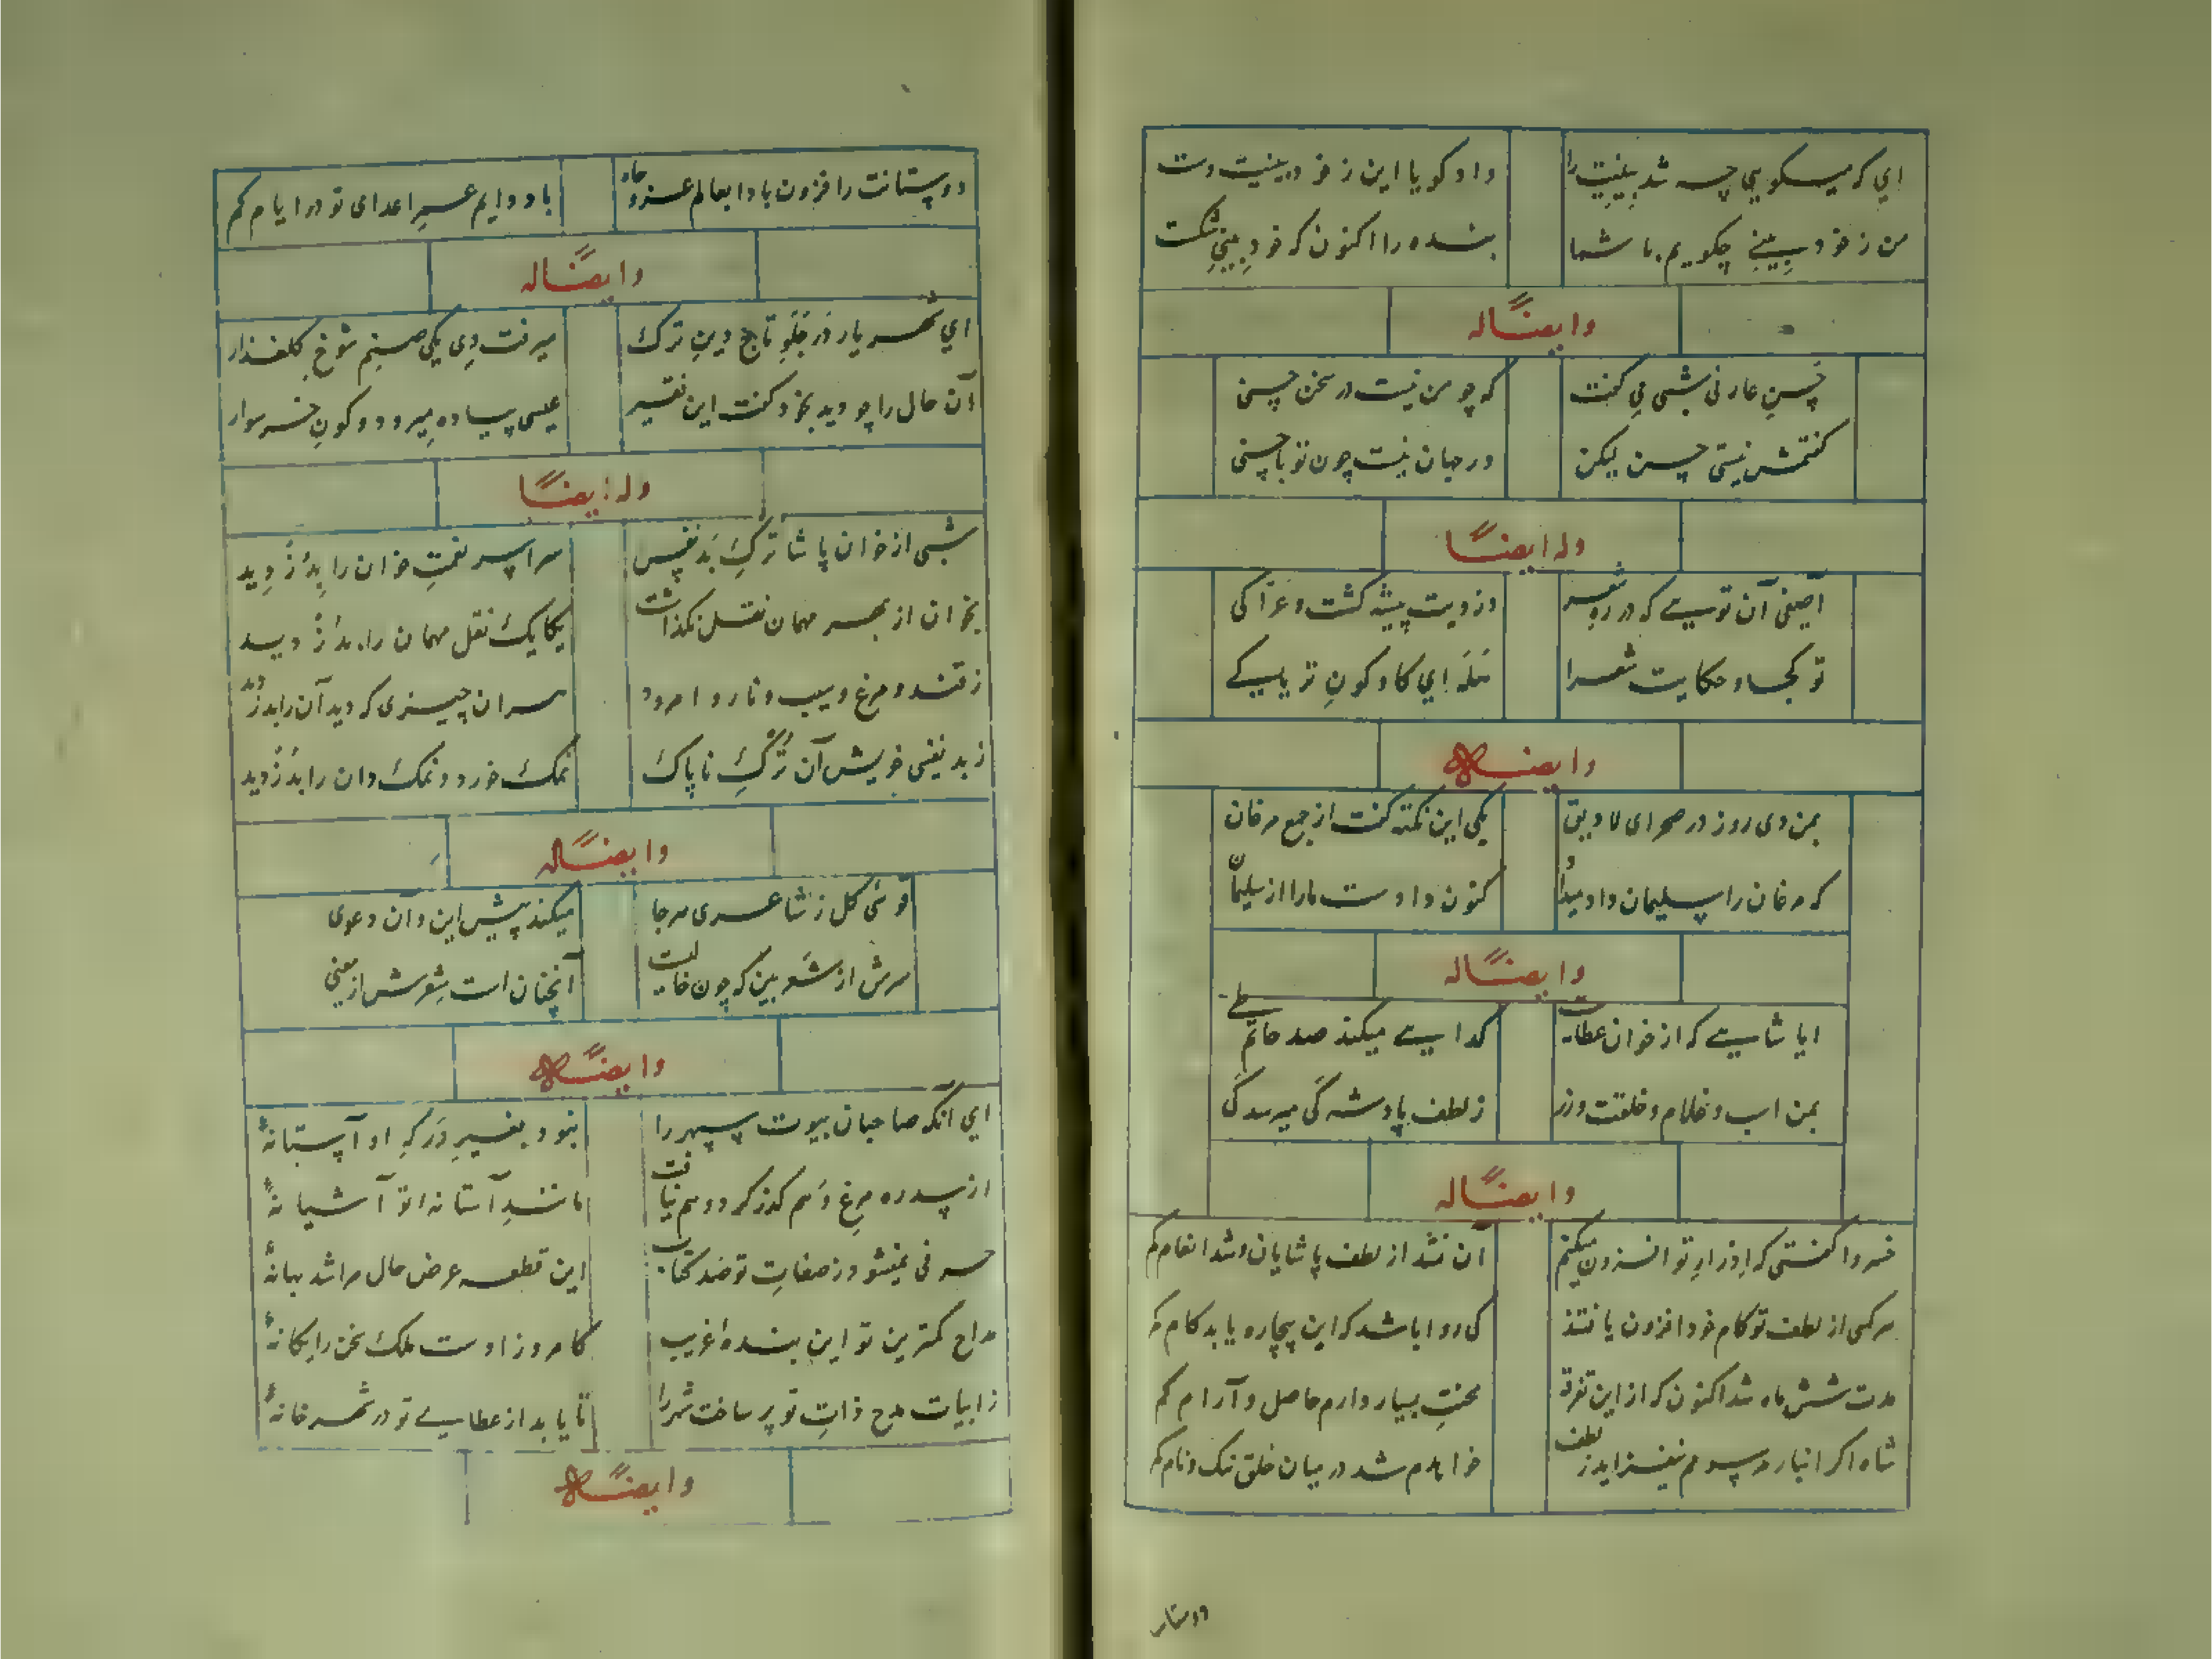 اي که میکویی چه شد بینیت را
داد کویا این ز خود بینیت دست
من ز خود بینی چکویم با شما
بنده را اکنون که خود بینی شکست
وایضًا له
حسن عارفی شبی می کفت
که چو من نیست در سخن حسنی
کفتمش نیستی حسن لیکن
در جهان نیست چون تو با حسنی
وله ایضًا
آصفی آن تویی که در ره شعر
دزدیت پیشه کشت و غرّا کی
تو کجا و حکایت شعرا
کی
وایضًا له
بمن دی روز در صحرای
یکی این نکته کفت از جمع مرغان
که مرغان را سلیمان داد میداد
کنون داد است ما را از سلیمان
وایضًا له
ایا شاهی که از خوان عطایت
کدایی میکند صد حاتم طی
بمن اسب و غلام و خلعت و زر
ز لطف پادشه کی میرسد کی
وایضًا له
خسروا کفتی که ادرار تو افزون میکنم
آن نشد از لطف پاشایان و شد انعام کم
هر کسی از لطف تو کام خود افزون یافتند
کی روا باشد که این بیچاره یابد کام کم
مدت شش ماه شد اکنون که از این تفرقه
محنت بسیار دارم حاصل و آرام کم
شاه اکر اینبار مرسومم نیفزاید ز لطف
خواهدم شد در میان خلق ننک و نام کم
دوستان
دوستانت را فزون بادا بعالم عزّ و جاه
باد دایم عمر اعدای تو در ایام کم
وایضًا له
اي شهریار در تاج دین ترک
میرفت دی یکی صنم شوخ کلعذار
آن حال را چو دید بخود کفت این فقیر
عیسی پیاده میرود و کون خر سوار
وله ایضًا
شبی از خوان پاشا ترک بد نفس
سراسر نعمت خوان را بدزدید
بخوان از بهر مهمان نقل نکذاشت
یکایک نقل مهمان را بدزدید
ز قند و مرغ و سیب و نار و امرود
هر ان چیزی که دید آن را بدزدید
ز بد نفسی خویش آن ترک ناپاک
نمک خورد و نمک دان را بدزدید
وایضًا له
کل ز شاعری هر جا
میکند پیش این و آن دعوی
سرش از شعر بین که چون خالیست
آنچنان است شعرش از معنی
وایضًا له
ای آنکه صاحبان بیوت سپهر را
نبود بغیر درکه او آستانهٔ
از سدره مرغ وهم کذر کرد و هم نیافت
مانند آستانه تو آشیانهٔ
حرفی نمیشود ز صفات تو صد کتاب
این قطعه عرض حال مرا شد بهانهٔ
مداح کمترین تو این بندهٔ غریب
کامروز اوست ملک سخن را یکانهٔ
ز ابیات مدح ذات تو پر ساخت شهر را
تا یابد از عطای تو در شهر خانهٔ
وایضًا له